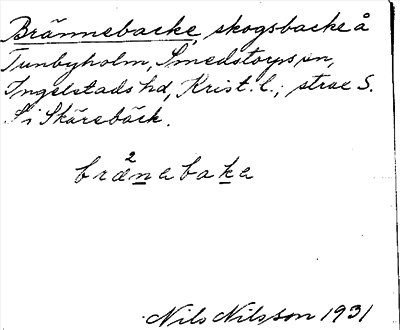 Brännebacke, skogsbacke å
Tunbyholm, Smedstorps sn,
Ingelstads hd, Krist. l.; strax S.
Skärebäck.
2
brænebake
Nils Nilsson 1931